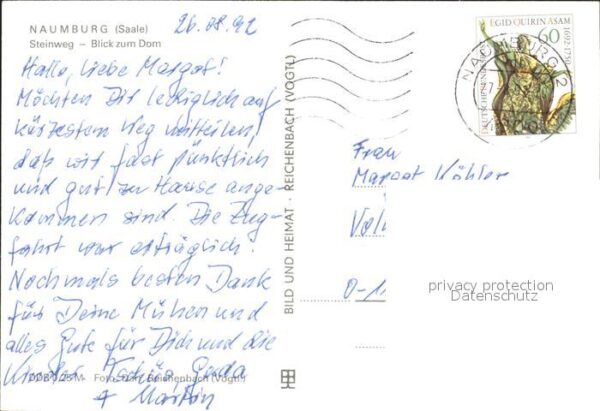 NAUMBURG (Saale)
Steinweg – Blick zum Dom
26.08.92
Hallo, liebe Margot!
Möchten Dir lediglich auf
kürzestem Weg mitteilen,
daß wir fast pünktlich
und gut zu Hause ange-
kommen sind. Die Zug-
fahrt war erträglich.
Nochmals besten Dank
für Deine Mühen und
alles Gute für Dich und die
Kinder. Tschüs,
+ Martin
Foto: Reichenbach (Vogtl)
BILD UND HEIMAT · REICHENBACH (VOGTL)
EGID QUIRIN ASAM
60
1692-1750
NAUMBURG
2
Frau
Margot Köhler
O-1
privacy protection
Datenschutz